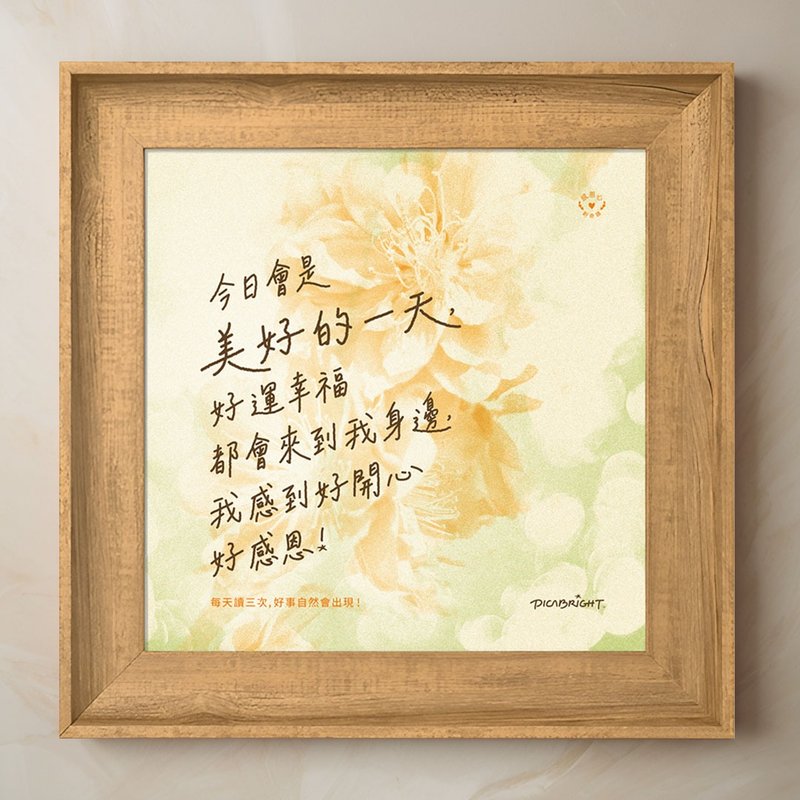 今日會是
美好的一天,
好運幸福
都會來到我身邊,
我感到好開心
好感恩!
每天讀三次,好事自然會出現!
PICABRIGHT